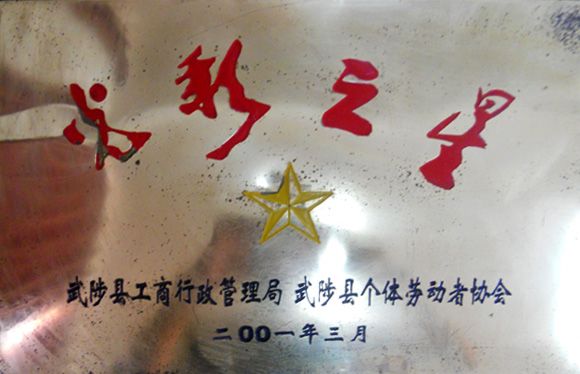 光彩之星
武陟县工商行政管理局 武陟县个体劳动者协会
二00一年三月